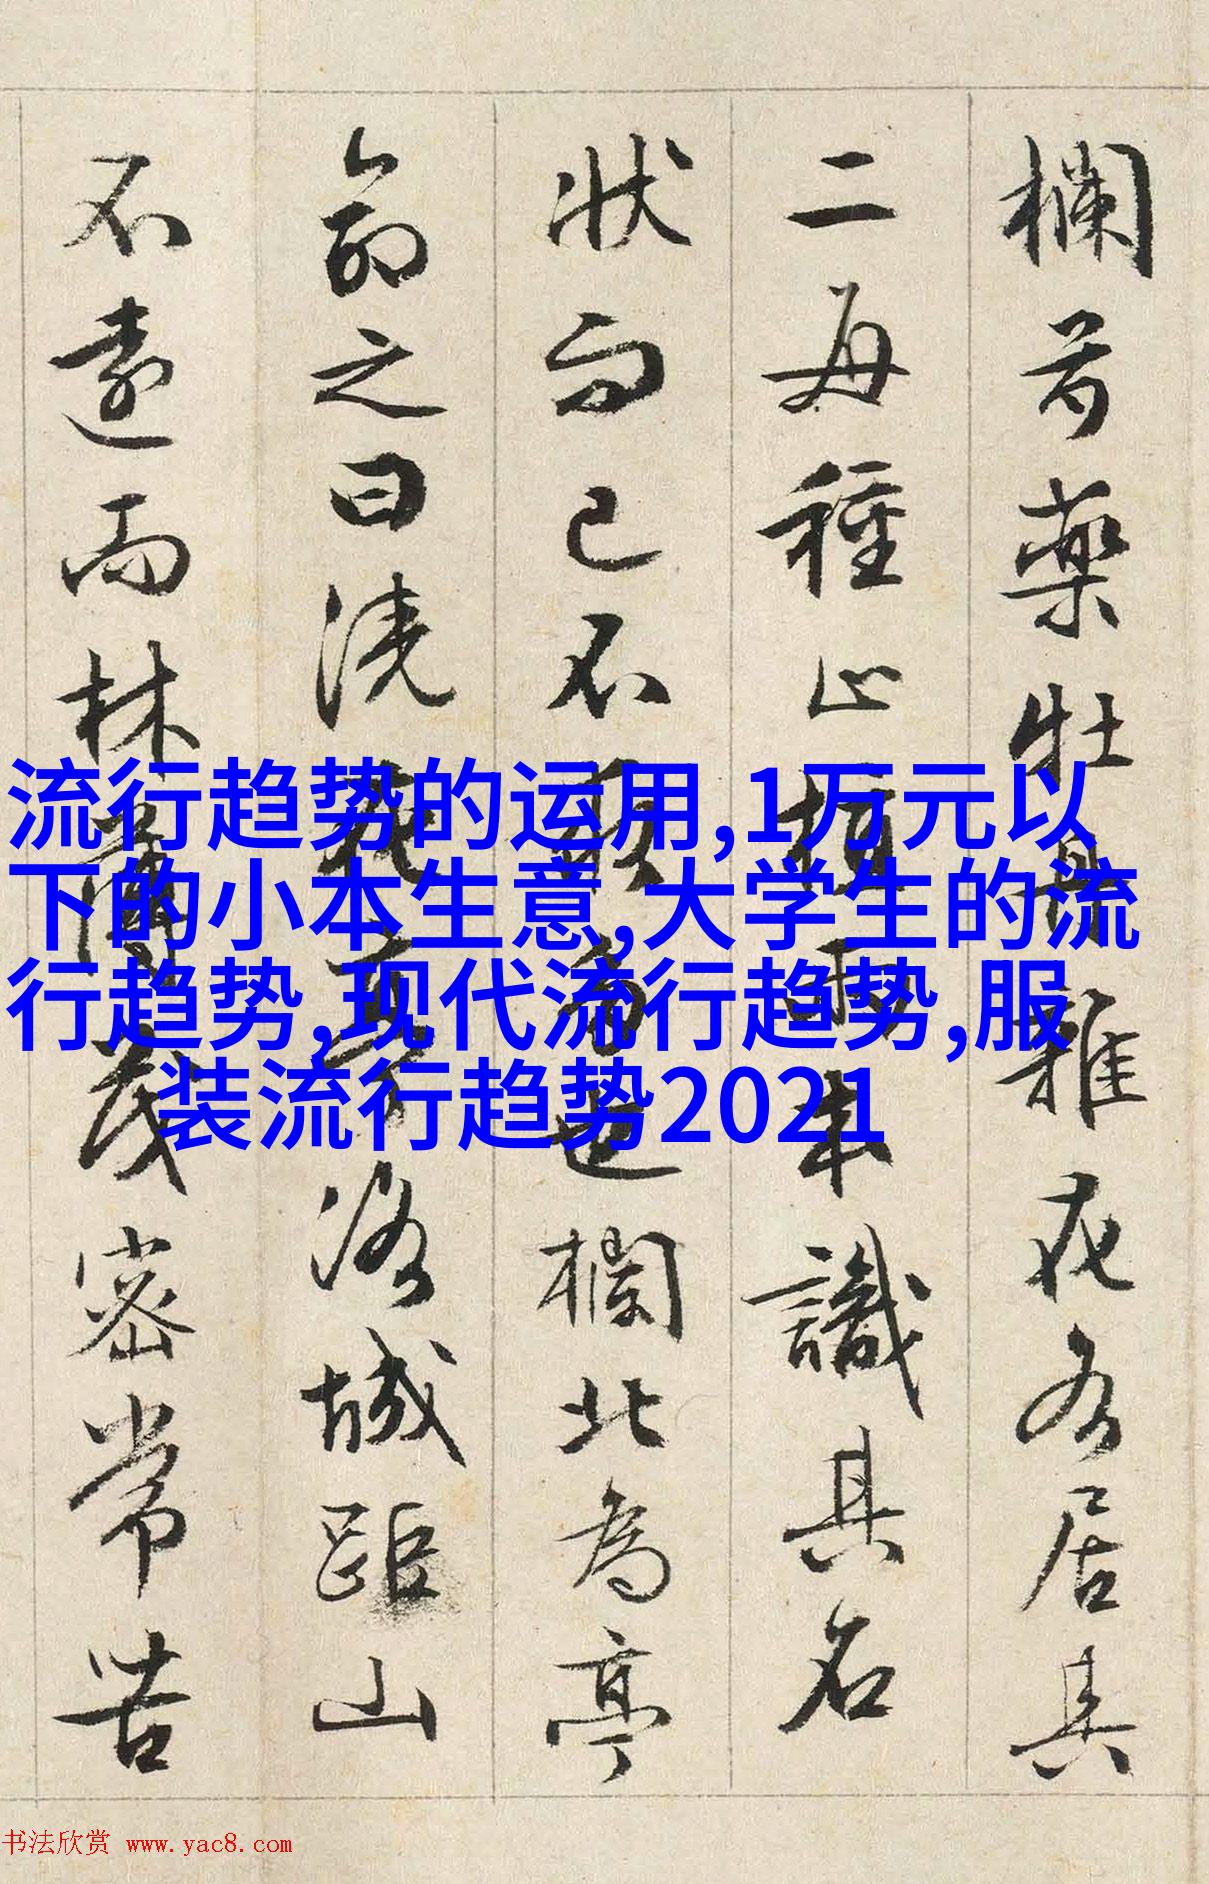 欄芍藥牡丹雜花各居其
二每種止植兩本識其名
狀而已不求多也欄北為亭
命之曰澆花亭洛城距山
不遠而林薄茂密常苦
流行趋势的运用,1万元以
下的小本生意,大学生的流
行趋势,现代流行趋势,服
装流行趋势2021
书法欣赏 www.yac8.com